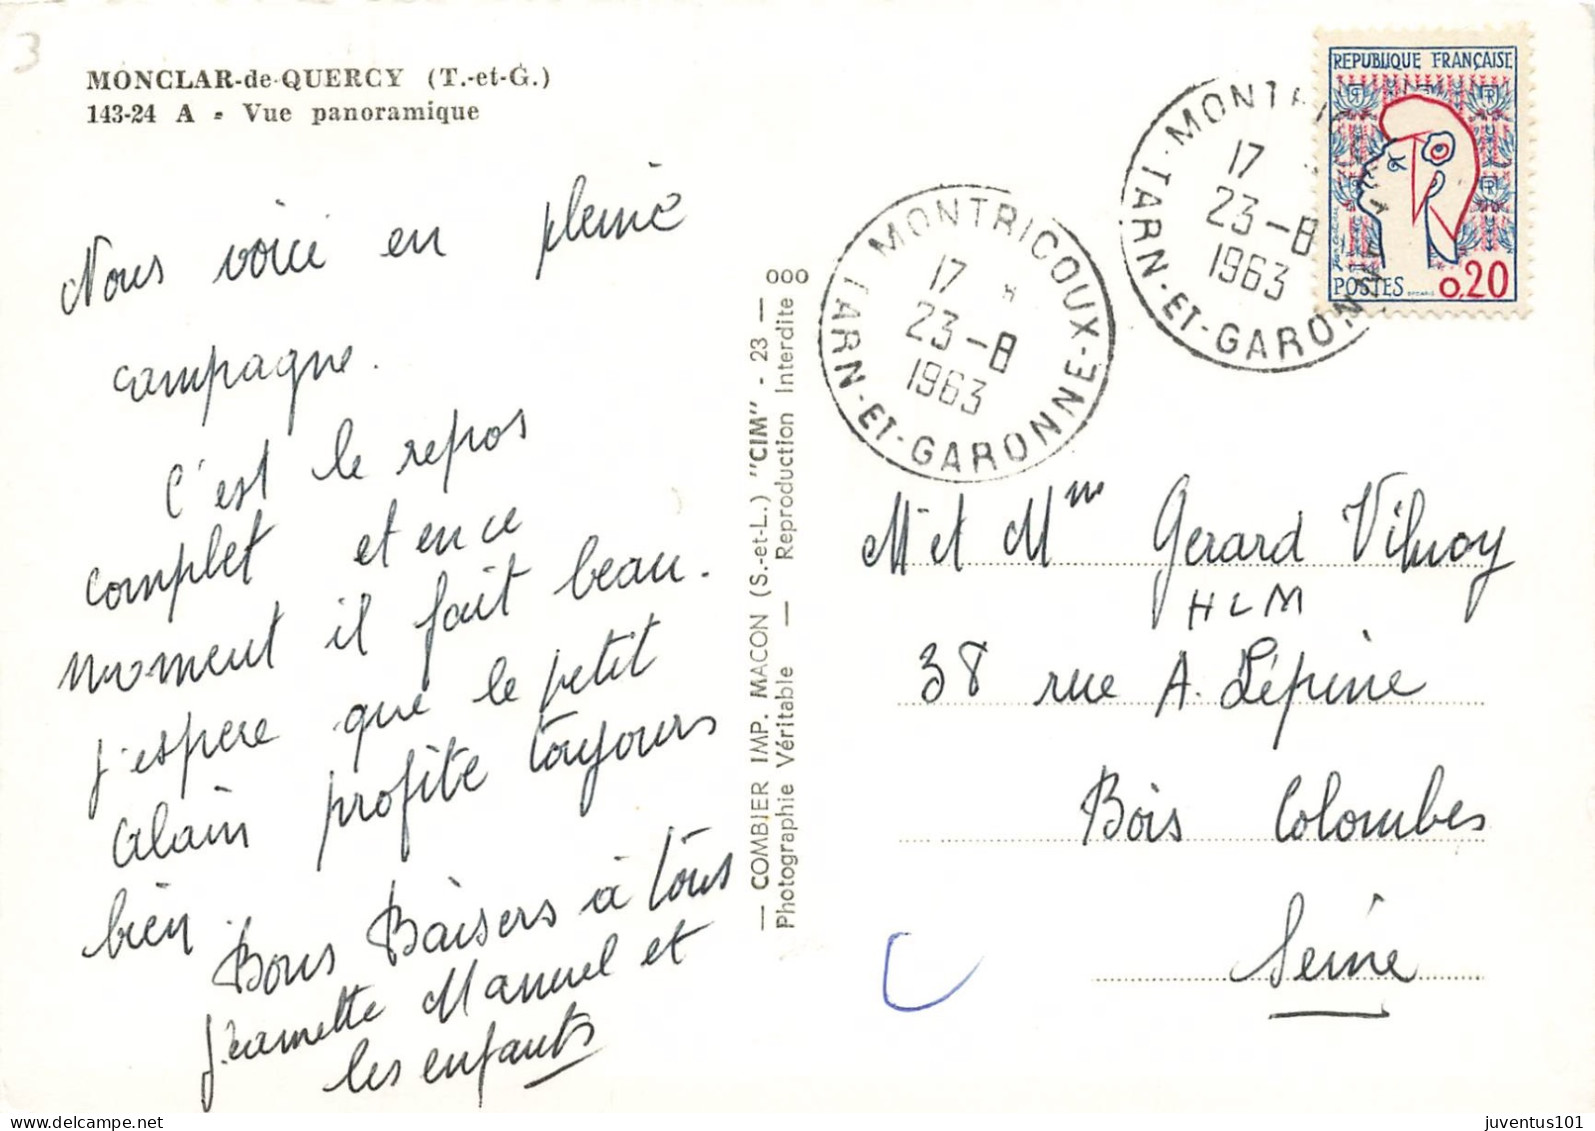 3
MONCLAR-de-QUERCY (T.-et-G.)
143-24 A - Vue panoramique
Nous voici en pleine
campagne.
C'est le repos
complet et en ce
moment il fait beau.
j'espere que le petit
Alain profite toujours
bien.
Bons Baisers à tous
Jeannette Manuel et
les enfants
— COMBIER IMP. MACON (S.-et-L.) "CIM" - 23 — 000
Photographie Véritable — Reproduction Interdite
MONTRICOUX
17 *
23-8
1963
TARN-ET-GARONNE
MONTRI
17 *
23-8
1963
TARN-ET-GARONN
REPUBLIQUE FRANÇAISE
RF
POSTES 0,20
M et Mme Gerard
HLM
38 rue A. Lépine
Bois Colombes
Seine
juventus101